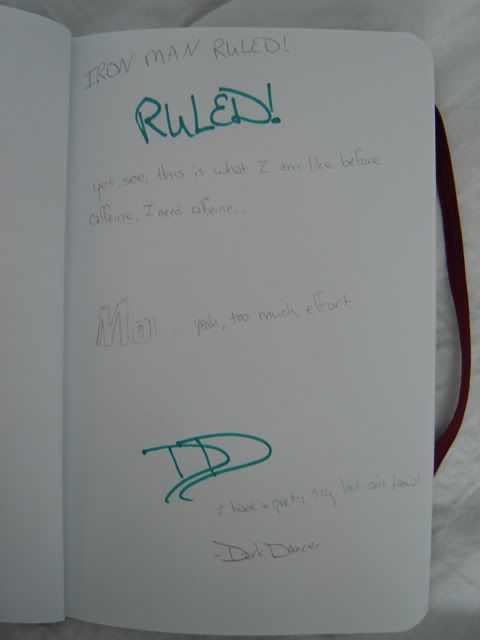 IRON MAN RULED!
RULED!
yes, see, this is what I am like before
caffeine, I need caffeine...
Mo
.. yeah, too much effort
DD
I have a pretty sig but can't draw!
-Dark Dancer